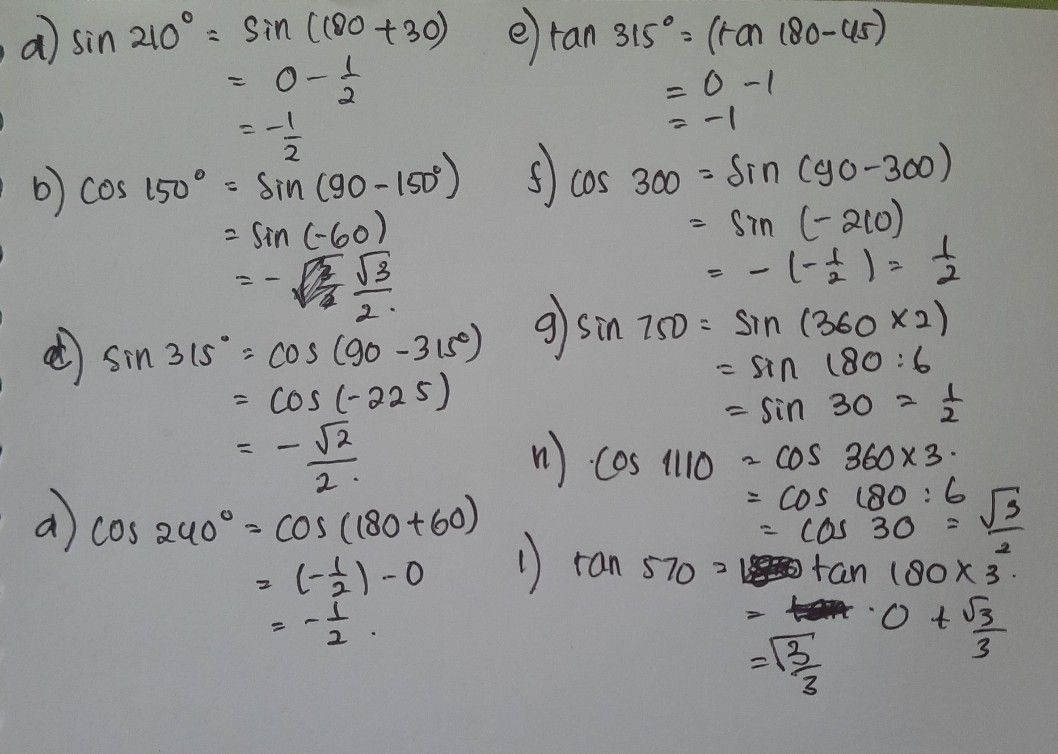 a) sin 210° = sin (180 + 30)
= 0 - 1/2
= -1/2
b) cos 150° = sin (90 - 150°)
= sin (-60)
= - √3/2.
) sin 315° = cos (90 - 315°)
= cos (-225)
= - √2/2.
d) cos 240° = cos (180 + 60)
= (-1/2) - 0
= -1/2.
e) tan 315° = (tan 180 - 45)
= 0 - 1
= -1
f) cos 300 = sin (90 - 300)
= sin (-210)
= - (-1/2) = 1/2
g) sin 750 = sin (360 × 2)
= sin 180 : 6
= sin 30 = 1/2
h) cos 1110 = cos 360 × 3.
= cos 180 : 6
= cos 30 = √3/2
i) tan 570 = tan 180 × 3.
= . 0 + √3/3
= √3/3